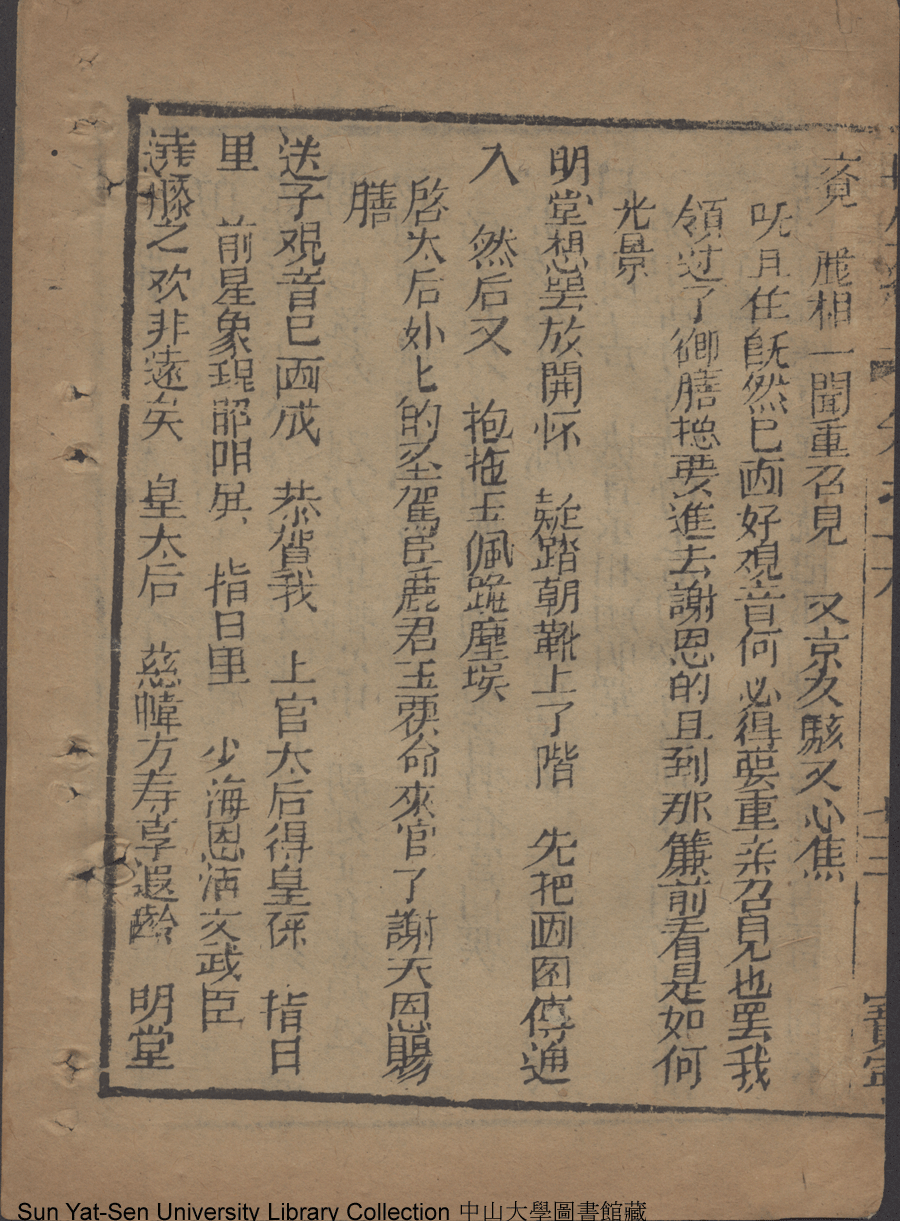 寛 鹿相一聞重召見 又京又駭又心焦
吥且住既然已画好覌音何必得要重来召見也罢我
領过了御膳搃要進去謝恩的且到那簾前看是如何
光景
明堂想罢放開怀 疑踏朝靴上了階 先把画图傳通
入 然后又 抱拖玉佩跪塵埃
啓太后外乜的圣駕臣鹿君玉蒙命來官了謝天恩賜
膳
送子覌音已画成 恭賀我 上官太后得皇孫 指日
里 前星象現昭昭矣 指日里 少海恩沾文武臣
遶膝之欢非遠矣 皇太后 慈幃方寿享遐齡 明堂
Sun Yat-Sen University Library Collection 中山大學圖書館藏